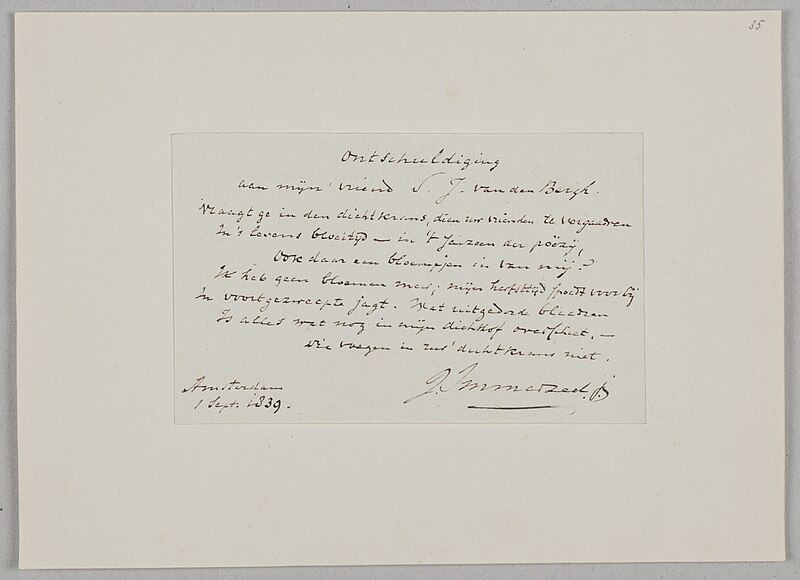 35
Ontschuldiging
aan mijn' vriend S. J. van den Bergh.
Vraagt ge in den dichtkrans, dien uw vrienden te vergaadren
In 's levens bloeitijd — in 't Saizoen der poëzij,
Ook daar een bloempjen in van mij?
Ik heb geen bloemen meer; mijn herfsttijd spoedt voorbij
In voortgezweepte jagt. Wat uitgedorde blaadren
Is alles wat nog in mijn dichthof overschiet. —
Die voegen in uw' dichtkrans niet.
J. Immerzeel, jr
Amsterdam
1 Sept. 1839.